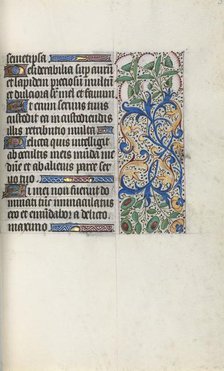 semetipsa
Desiderabilia sup aurū
et lapidem preciosū multū
et dulciora sup mel et fauum.
Et enim seruus tuus
custodit ea in custodiendis
illis retributio multa.
Delicta quis intelligit
ab occultis meis mūda me
dn̄e et ab alienis parce ser
uo tuo.
Si mei non fuerint do
minati tūc immaculatus
ero et emūdabor a delicto
maximo